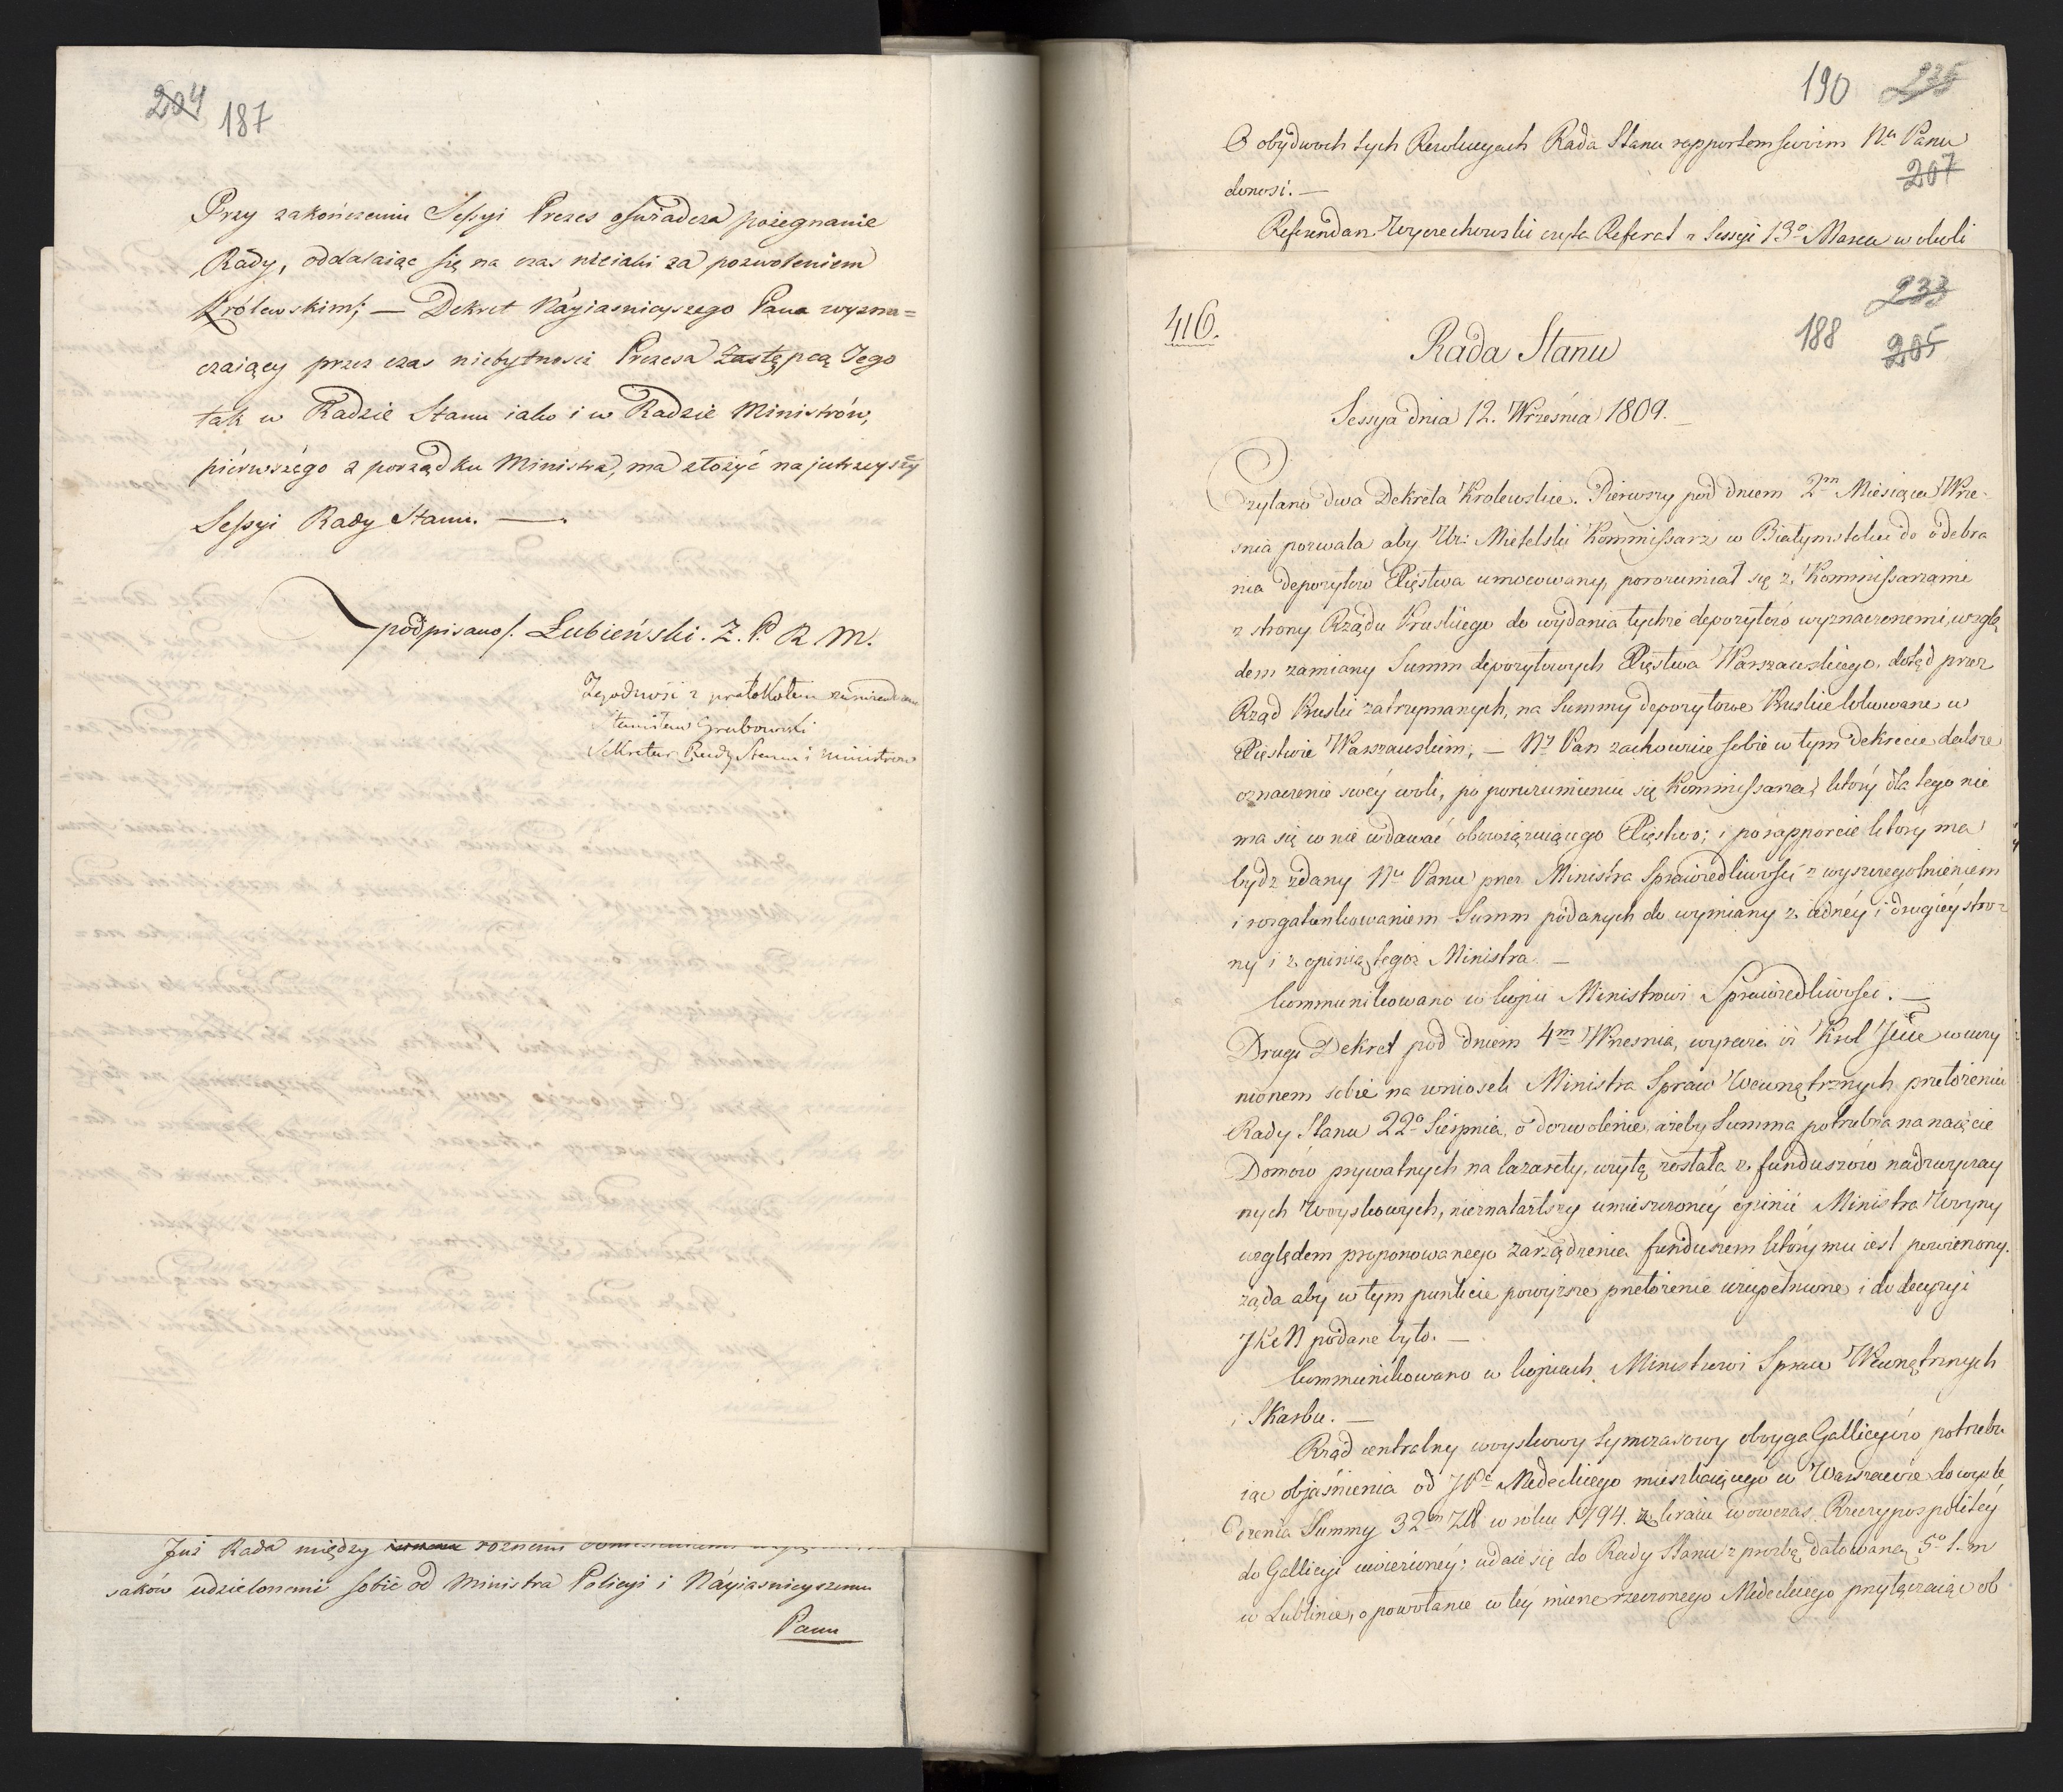 204 187
Przy zakończeniu Sessyi Prezes oświadcza pożegnanie
Rady, oddalaiąc się na czas nieiaki za pozwoleniem
Królewskim; — Dekret Nayiasnieyszego Pana wyzna=
czaiący przez czas niebytnosci Prezesa Zastępcą Jego
tak w Radzie Stanu iako i w Radzie Ministrów,
piérwszégo z porządku Ministra, ma złożyć na jutrzeyszéy
Sessyi Rady Stanu. —
podpisano/. Łubieński. Z. P. R. M.
Zgodność z protokółem zaświadczam
Stanisław Grabowski
Sekretarz Rady Stanu i Ministrow
Już Rada między roznemi
saków udzielonemi sobie od Ministra Policyi i Nayiasnieyszemu
Panu
190 235
O obydwoch tych Rezolucyach Rada Stanu rapportem swoim Nu Panu
207
donosi. —
Referendarz Wyczechowski czyta Referat z Sessyi 13o Marca w okoli
233
416. 188 205
Rada Stanu
Sessya dnia 12. Września 1809. —
Czytano dwa Dekreta Krolewskie. Pierwszy pod dniem 2m Miesiąca Wrze-
snia pozwala aby Ur: Mietelski Kommissarz w Białymstoku do odebra
nia depozytow Xięstwa umocowany, porozumiał się z Kommissarzami
z strony Rządu Pruskiego do wydania tychże depozytów wyznaczonemi, wzglę
dem zamiany Summ depozytowych Xięstwa Warszawskiego, dotąd przez
Rząd Pruski zatrzymanych, na Summy depozytowe Pruskie lokowane w
Xięstwie Warszawskim; — Ny Pan zachowuie sobie w tym Dekrecie dalsze
oznaczenie swéy woli, po porozumieniu się Kommissarza, który dla tego nie
ma się w nic wdawać obowiązuiącego Xięstwo; i po rapporcie który ma
bydz zdany Nu Panu przez Ministra Sprawiedliwości z wyszczególnieniem
i rozgatunkowaniem Summ podanych do wymiany z iednéy i drugiéy stro-
ny i z opinią tegoż Ministra. —
Kommunikowano w kopii Ministrowi Sprawiedliwości. —
Drugi Dekret pod dniem 4m Wrzesnia, wyraża iż Krol Jmć w uczy
nionem sobie na wniosek Ministra Spraw Wewnętrznych przełożeniu
Rady Stanu 22o Sierpnia, o dozwolenie, ażeby Summa potrzebna na naięcie
Domów prywatnych na lazarety, wzięta została z funduszów nadzwyczay
nych Woyskowych, nieznalazłszy umieszczonéy opinii Ministra Woyny
względem proponowanego zarządzenia funduszem który mu iest powierzony.
żąda aby w tym punkcie powyższe przełożenie uzupełnione i do decyzyi
JKcM podane było. —
Kommunikowano w kopiach Ministrowi Spraw Wewnętrznych
i Skarbu. —
Rząd centralny woyskowy tymczasowy oboyga Gallicyiów potrzebu
iąc obiaśnienia od JPa Medeckiego mieszkaiącego w Warszawie do wyśle
dzenia Summy 32m Zł w roku 1794. z kraiu wowczas Rzeczypospolitéy
do Gallicyi uwiezionéy; udaie się do Rady Stanu z prozbą datowaną 5o t. m
w Lublinie, o powołanie w téy mierze rzeczonego Medeckiego przyłączaiąc ob